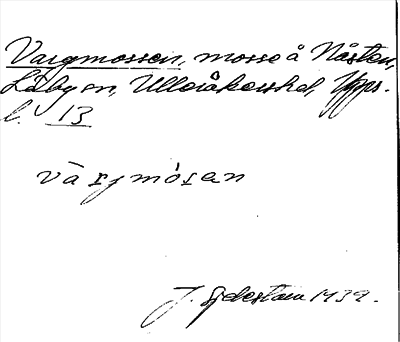 Vargmossen, mosse å Nåsten,
Läby sn, Ulleråkers hd, Upps.
l. 13
vàrjmósan
J. Sjdestam 1939.